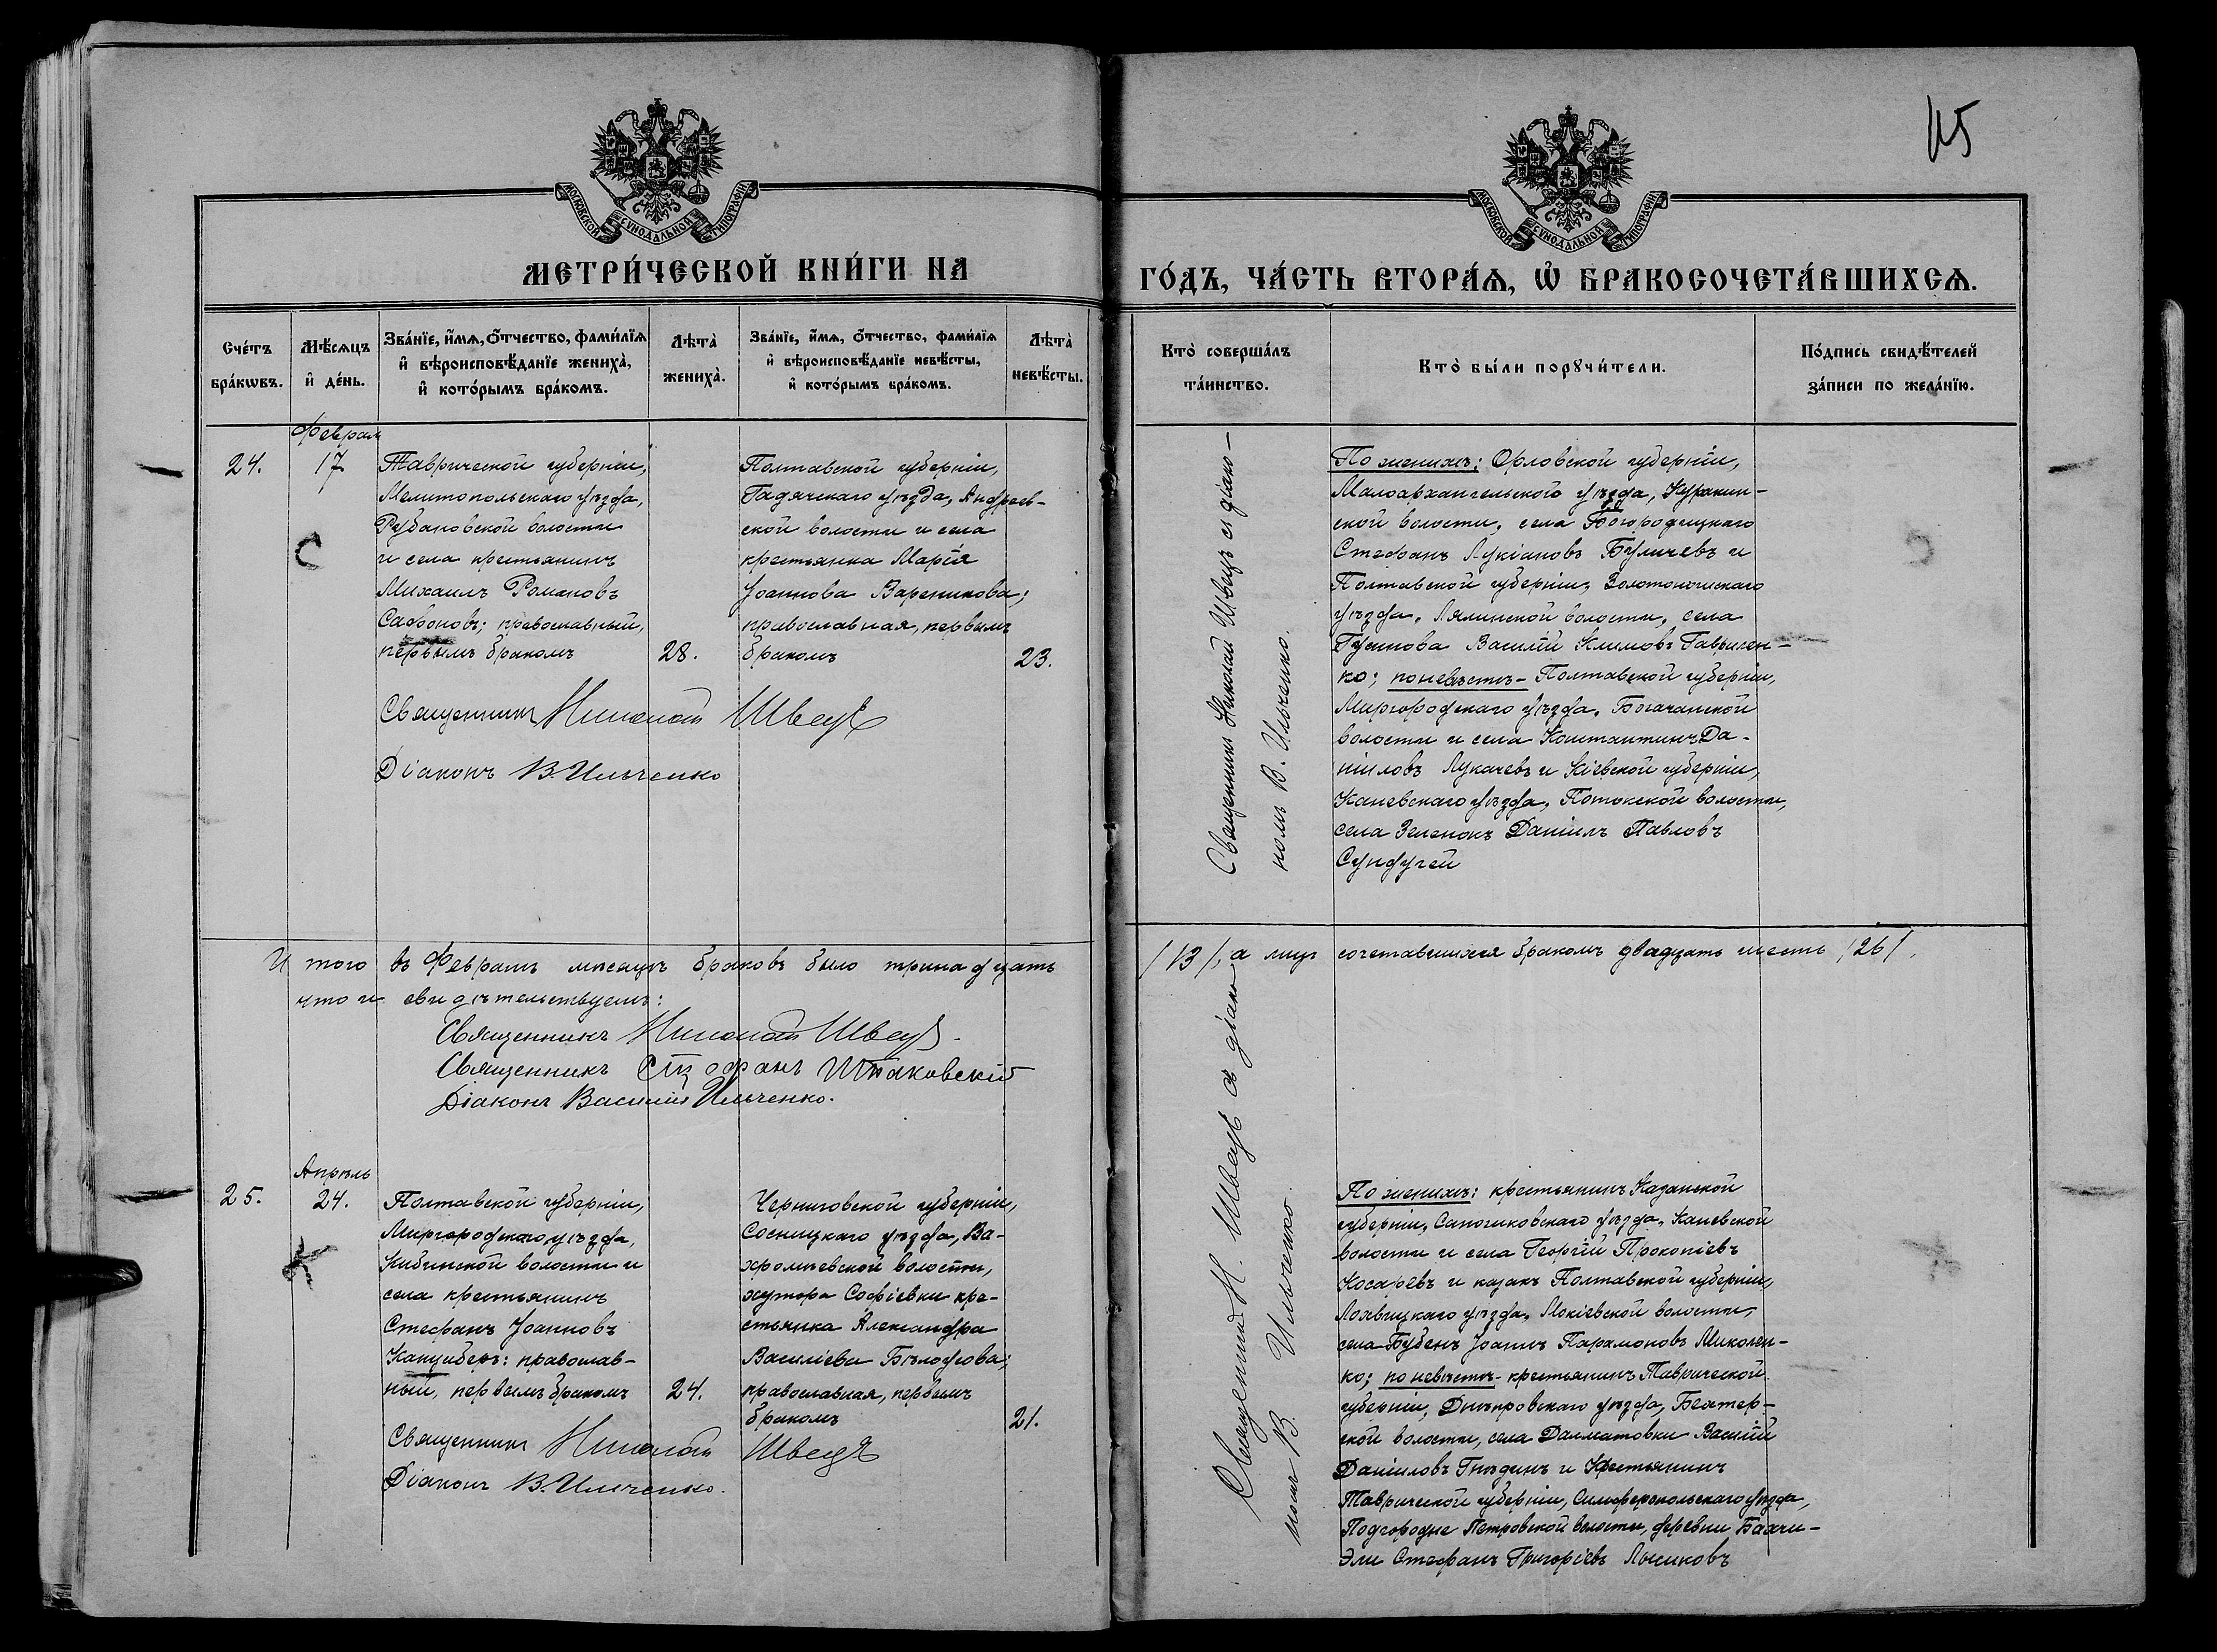 115
МОСКОВСКОЙ СѴНОДАЛЬНОЙ ТИПОГРАФІИ
МОСКОВСКОЙ СѴНОДАЛЬНОЙ ТИПОГРАФІИ
МЕТРИ́ЧЕСКОЙ КНИ́ГИ НА
ГО́ДЪ, ЧА́СТЬ ВТОРА́Ѧ, Ѽ БРАКОСОЧЕТА́ВШИХСѦ.
Сче́тъ
бра́кѡвъ.
Мѣ́сяцъ
и҆ де́нь.
Зва́нїе, и҆́мѧ, ѻ҆́тчество, фами́лїѧ
и҆ вѣроисповѣ́данїе жениха̀,
и҆ кото́рымъ бра́комъ.
Лѣта̀
жениха̀.
Зва́нїе, и҆́мѧ, ѻ҆́тчество, фами́лїѧ
и҆ вѣроисповѣ́данїе невѣ́сты,
и҆ кото́рымъ бра́комъ.
Лѣта̀
невѣ́сты.
Кто̀ соверша́лъ
та́инство.
Кто̀ бы́ли порꙋчи́тели.
По́дпись свидѣ́телей
за́писи по жела́нїю.
24.
Феврал
17
С
Таврической губерніи,
Мелитопольскаго уѣзда,
Рубановской волости
и села крестьянинъ
Михаилъ Романовъ
Сафоновъ; православный,
первымъ бракомъ
28.
Полтавской губерніи,
Гадячскаго уѣзда, Андреев-
ской волости и села
крестьянка Марія
Іоаннова Вареникова;
православная, первымъ
бракомъ
23.
Священникъ Николай Швецъ
Діаконъ В. Ильченко
Священникъ Николай Швецъ съ діако-
номъ В. Ильченко.
По женихѣ: Орловской губерніи,
Малоархангельского уѣзда, Куракин-
ской волости, села Богородицкаго
Стефанъ Лукіановъ Буличевъ и
Полтавской губерніи, Золотоношскаго
уѣзда, Лялинской волости, села
Василій Климовъ Гавриен-
ко; по невѣстѣ- Полтавской губерніи,
Миргородскаго уѣзда, Богачанской
волости и села Константинъ Да-
ніиловъ Лукачевъ и Кіевской губерніи,
Каневскаго уѣзда, Потокской волости,
села Зеленокъ Даніилъ Павловъ
Сундугей
И того въ Февралѣ мѣсяцѣ браковъ было тринадцать
/13/, а лицъ сочетавшихся бракомъ двадцать шесть /26/.
что и свидѣтельствуемъ:
Священникъ Николай Швецъ.
Священникъ Стефанъ
Діаконъ Василій Ильченко.
25.
Апрѣль
24.
Полтавской губерніи,
Миргородскаго уѣзда,
Кибинской волости и
села крестьянинъ
Стефанъ Іоанновъ
Канциберъ: православ-
ный, первымъ бракомъ
24.
Черниговской губерніи,
Сосницкаго уѣзда, Ва-
хромѣевской волости,
хутора Софіевки кре-
стьянка Александра
Василіева Бѣлоусова;
православная, первымъ
бракомъ
21.
Священникъ Николай Швецъ
Діаконъ В. Ильченко.
Священникъ Н. Швецъ съ діако
номъ В. Ильченко
По женихѣ: крестьянинъ Казанской
губерніи, уѣзда, Каневской
волости и села Георгій Прокопіевъ
Косаревъ и казакъ Полтавской губерніи,
Лохвицкаго уѣзда, Мокіевской волости,
села Бубенъ Іоаннъ Парамоновъ Миколен-
ко; по невѣстѣ- крестьянинъ Таврической
губерніи, Днѣпровскаго уѣзда, Бехтер-
ской волости, села Далматовки Василій
Даніиловъ Гнѣдинъ и Крестьянинъ
Таврической губерніи, Симферопольскаго уѣзда,
Подгородне Петровской волости, деревни Бахчи-
Эли Стефанъ Григоріевъ Лысиковъ